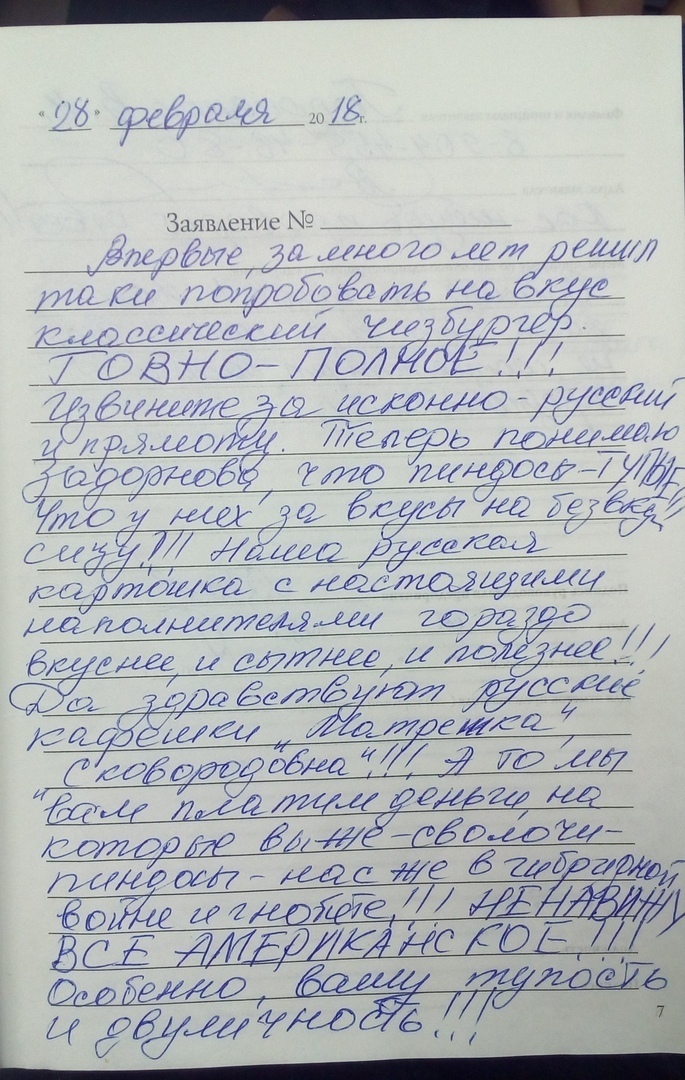 « 28 » февраля 2018 г.
Заявление №
Впервые, за много лет решил
таки попробовать на вкус
классический чизбургер.
ГОВНО-ПОЛНОЕ!!!
Извините за исконно-русский
и прямоту. Теперь понимаю
Задорнова, что пиндосы-ТУПЫЕ!!
Что у них за вкусы на безвку
сицу!!! Наша русская
картошка с настоящими
наполнителями гораздо
вкуснее, и сытнее, и полезнее!!!
Да здравствуют русские
кафешки „Матрешка",
"Сковородовна"!!! А то мы
вам платим деньги, на
которые вы же-сволочи-
пиндосы-нас же в гибридной
войне и гнобите!!! НЕНАВИЖУ
ВСЕ АМЕРИКАНСКОЕ!!!
Особенно, вашу тупость
и двуличность!!!
7